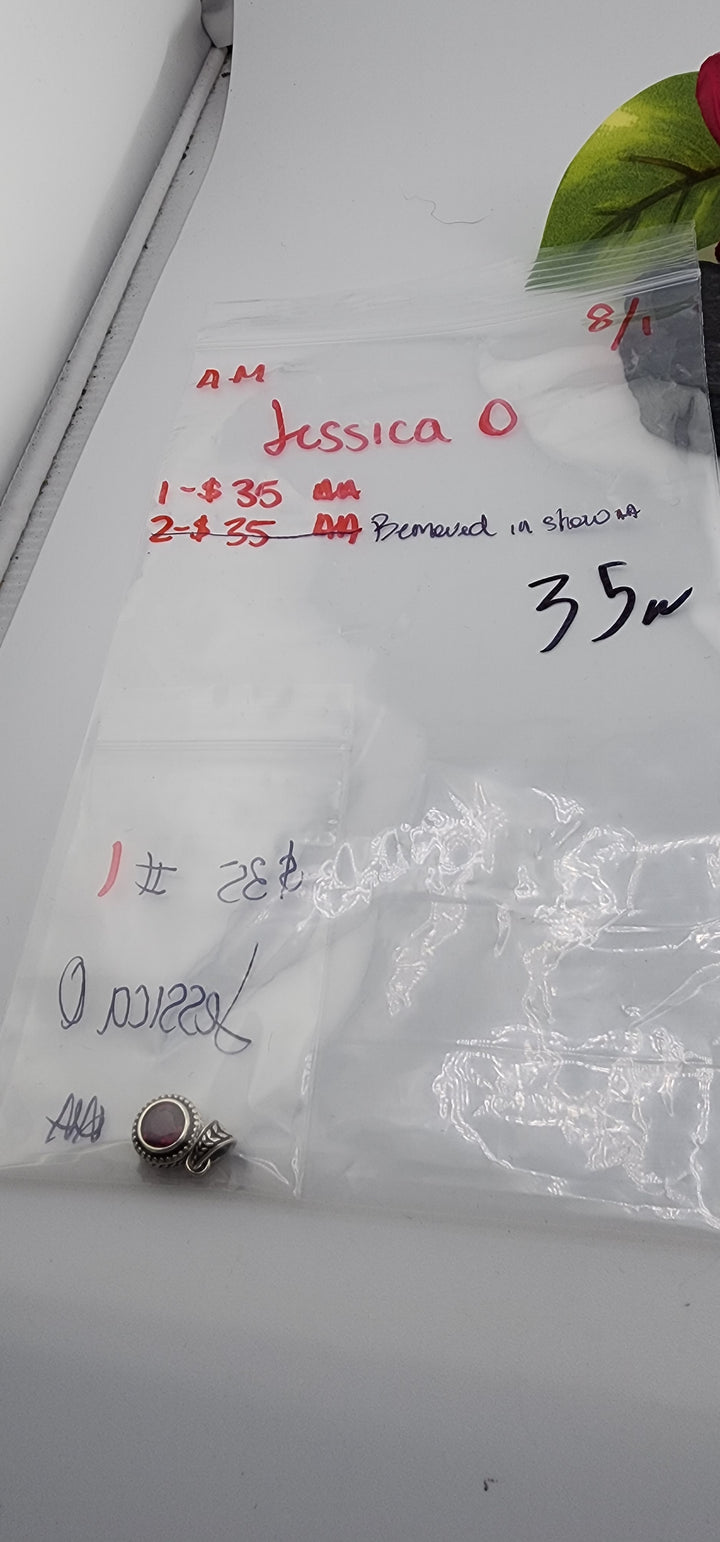 8/1
AM
Jessica O
1-$35 AA
2-$35 AA Removed in show AA
35
$35 #1
Jessica O
AA